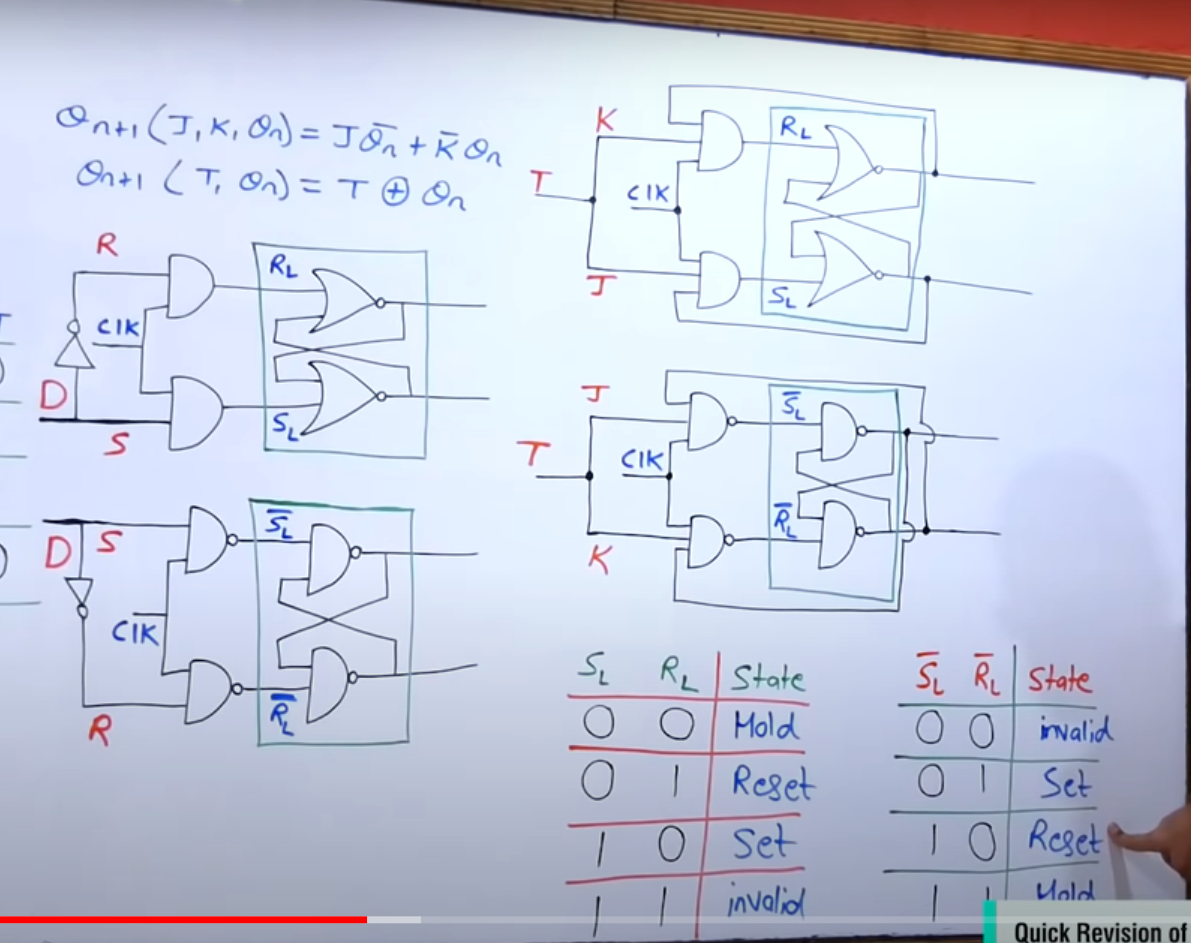 Qn+1 (J, K, Qn) = JQ̅n + K̅Qn
Qn+1 (T, Qn) = T ⊕ Qn
R
RL
CIK
D
SL
S
D S
S̅L
CIK
R̅L
R
K
RL
T
CIK
J
SL
J
S̅L
T
CIK
R̅L
K
SL RL State
0 0 Hold
0 1 Reset
1 0 Set
1 1 invalid
S̅L R̅L State
0 0 invalid
0 1 Set
1 0 Reset
1 1 Hold
Quick Revision of